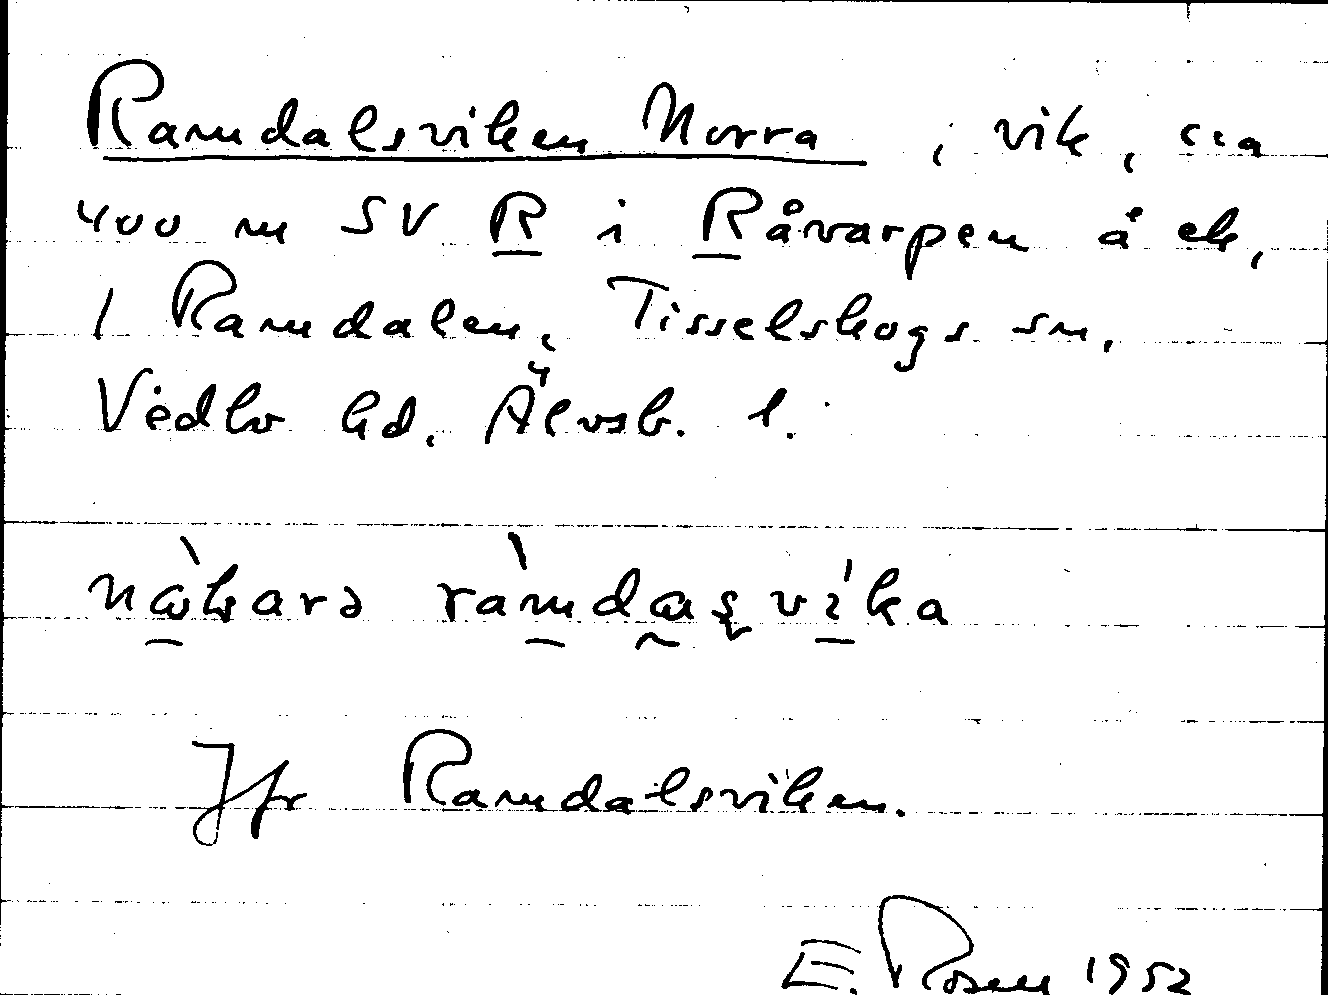 Ramdalsviken Norra, vik, c:a
400 m SV R i Råvarpen å ek,
1 Ramdalen, Tisselskogs sn,
Vedbo hd, Älvsb. l.
ràmdas̨ víka
Jfr Ramdalsviken.
E. Rosell 1952